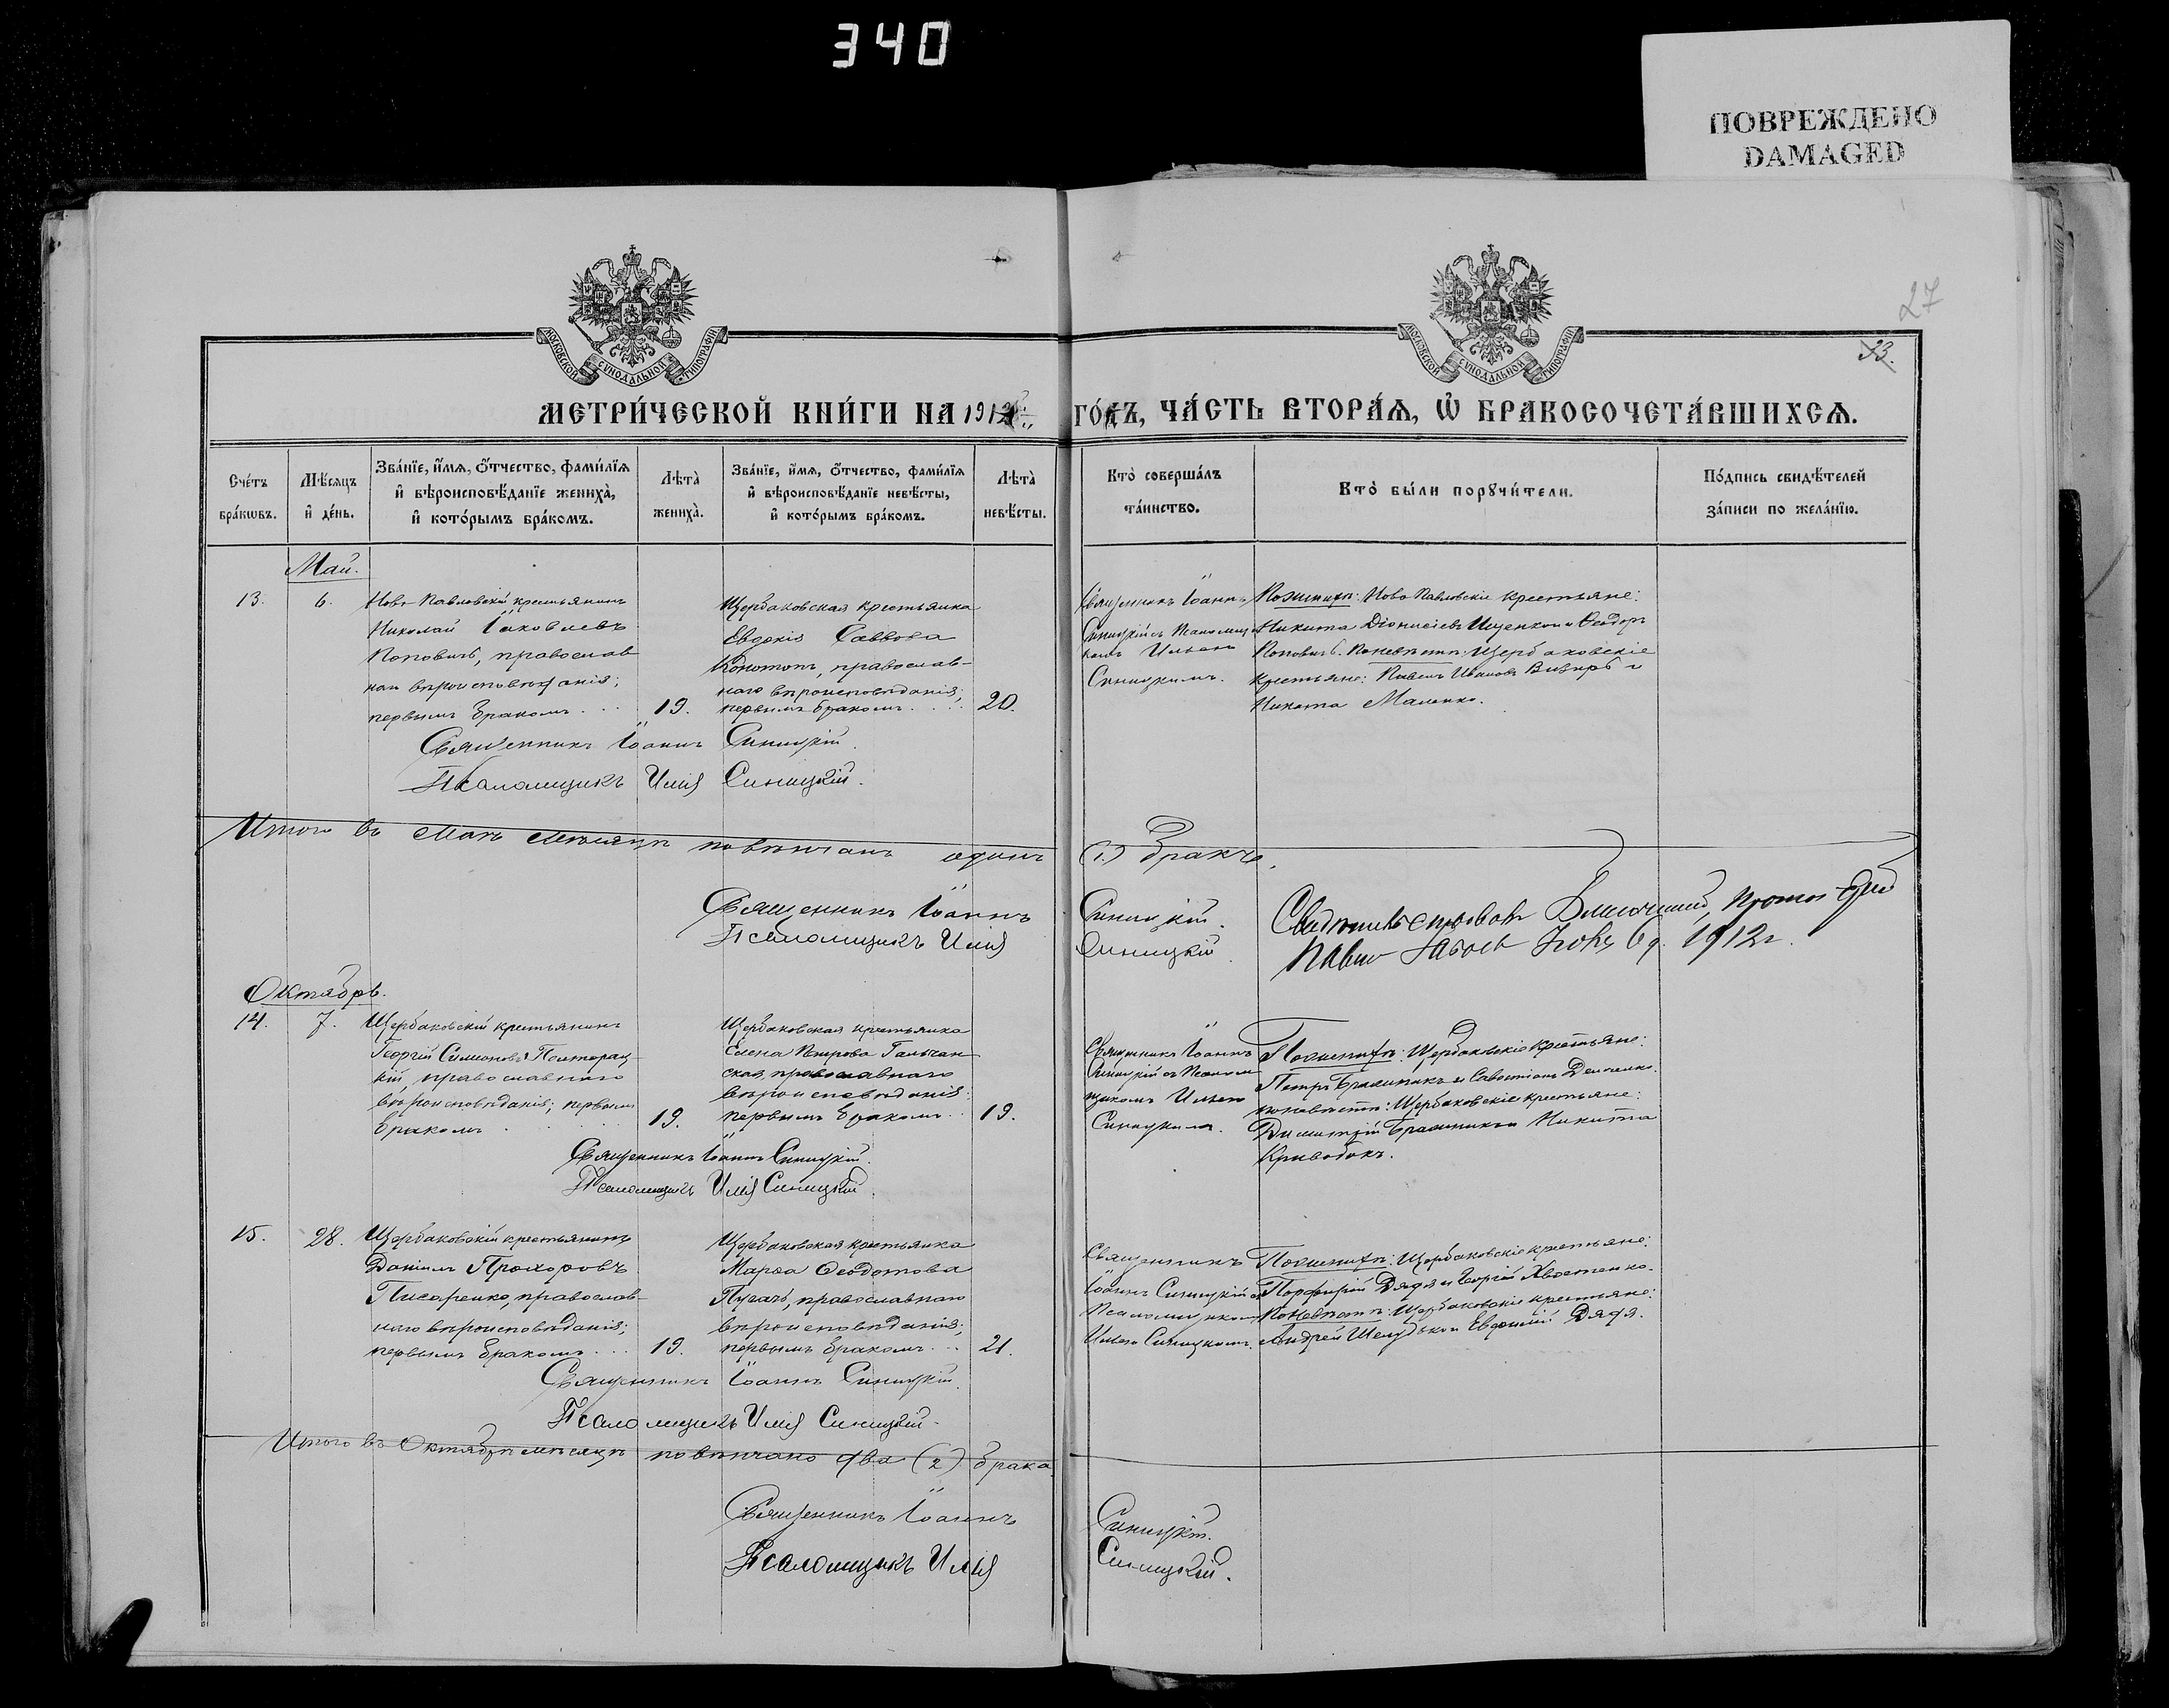 340
ПОВРЕЖДЕНО
DAMAGED
27
33.
МОСКОВСКОЙ СѴНОДАЛЬНОЙ ТИПОГРАФІИ
МОСКОВСКОЙ СѴНОДАЛЬНОЙ ТИПОГРАФІИ
МЕТРИ́ЧЕСКОЙ КНИ́ГИ НА 1912 ГО́ДЪ, ЧА́СТЬ ВТОРА́Ѧ, Ѡ҆ БРАКОСОЧЕТА́ВШИХСѦ.
Сче́тъ
бра́кѡвъ.
Мѣ́сѧцъ
и҆ де́нь.
Зва́нїе, и҆́мѧ, ѻ҆́тчество, фами́лїѧ
и҆ вѣроисповѣ́данїе жениха̀,
и҆ кото́рымъ бра́комъ.
Лѣта̀
жениха̀.
Зва́нїе, и҆́мѧ, ѻ҆́тчество, фами́лїѧ
и҆ вѣроисповѣ́данїе невѣ́сты,
и҆ кото́рымъ бра́комъ.
Лѣта̀
невѣ́сты.
Кто̀ соверша́лъ
та́инство.
Кто̀ бы́ли порꙋчи́тели.
По́дпись свидѣ́телей
за́писи по жела́нїю.
Май.
13.
6.
Ново-Павловскій крестьянинъ
Николай Іаковлевъ
Поповичъ, православ
наго вѣроисповѣданія;
первымъ бракомъ . . .
19.
Щербаковская крестьянка
Евдокія Саввова
Конотопъ, православ-
наго вѣроисповѣданія;
первымъ бракомъ . . .
20.
Священникъ Іоаннъ
Синицкій съ Псаломщи
комъ Ильею
Синицкимъ.
По женихѣ: Ново Павловскіе крестьяне:
Никита Діонисіевъ Ищенко и Ѳеодоръ
Поповичъ. По невѣстѣ: Щербаковскіе
крестьяне: Павелъ Ивановъ Визиръ и
Никита Маленко.
Священникъ Іоаннъ Синицкій.
Псаломщикъ Илія Синицкій.
Итого въ Маѣ мѣсяцѣ повѣнчанъ одинъ (1) бракъ.
Священникъ Іоаннъ Синицкій.
Псаломщикъ Илія Синицкій.
Свидѣтельствовалъ Благочинный,
Павелъ 6 д. 1912 г.
Октябрь.
14.
7.
Щербаковскій крестьянинъ
Георгій Симеоновъ Полторац-
кій, православнаго
вѣроисповѣданія; первымъ
бракомъ . . . . .
19.
Щербаковская крестьянка
Елена Петрова Гальчан
ская, православнаго
вѣроисповѣданія;
первымъ бракомъ . .
19.
Священникъ Іоаннъ
Синицкій съ Псалом
щикомъ Ильею
Синицкимъ.
По женихѣ: Щербаковскіе крестьяне:
Петръ Бражникъ и Савостіанъ Демченко.
по невѣстѣ: Щербаковскіе крестьяне:
Димитрій Бражникъ и Никита
Кривобокъ.
Священникъ Іоаннъ Синицкій.
Псаломщикъ Илія Синицкій.
15.
28.
Щербаковскій крестьянинъ
Даніилъ Прохоровъ
Писаренко, православ-
наго вѣроисповѣданія;
первымъ бракомъ . . .
19.
Щербаковская крестьянка
Марѳа Ѳеодотова
Пугачъ, православнаго
вѣроисповѣданія;
первымъ бракомъ . . .
21.
Священникъ
Іоаннъ Синицкій съ
Псаломщикомъ
Ильею Синицкимъ.
По женихѣ: Щербаковскіе крестьяне:
Порфирій Дядя и Георгій Хвостенко.
По невѣстѣ: Щербаковскіе крестьяне:
Андрей Шелудько и Евѳимій Дядя.
Священникъ Іоаннъ Синицкій.
Псаломщикъ Илія Синицкій.
Итого въ Октябрѣ мѣсяцѣ повѣнчано два (2) брака.
Священникъ Іоаннъ Синицкій.
Псаломщикъ Илія Синицкій.